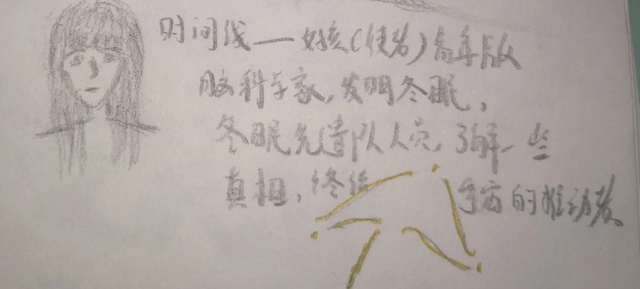 时间线一女孩(使者)高年版
脑科学家,发明冬眠,
冬眠先遣队人员,了解一些
真相,终结 的推动者。